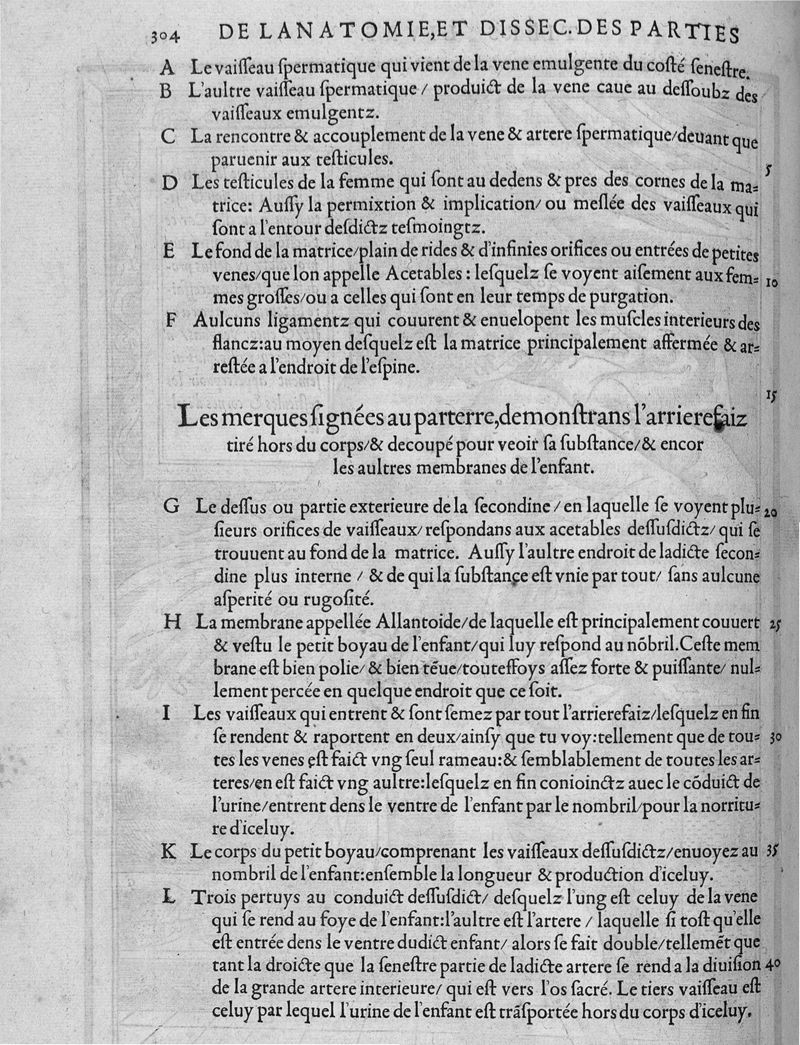 304 DE LANATOMIE,ET DISSEC.DES PARTIES
A Le vaiſſeau ſpermatique qui vient de la vene emulgente du coſté ſeneſtre.
B L'aultre vaiſſeau ſpermatique / produict de la vene caue au deſſoubz des
vaiſſeaux emulgentz.
C La rencontre & accouplement de la vene & artere ſpermatique/deuant que
paruenir aux teſticules.
5
D Les teſticules de la femme qui ſont au dedens & pres des cornes de la ma⸗
trice: Auſſy la permixtion & implication/ ou meſlée des vaiſſeaux qui
ſont a l'entour deſdictz teſmoingtz.
E Le fond de la matrice/plain de rides & d'infinies orifices ou entrées de petites
venes/que lon appelle Acetables : leſquelz ſe voyent aiſement aux fem⸗ 10
mes groſſes/ou a celles qui ſont en leur temps de purgation.
F Aulcuns ligamentz qui couurent & enuelopent les muſcles interieurs des
flancz:au moyen deſquelz eſt la matrice principalement affermée & ar⸗
reſtée a l'endroit de l'eſpine.
15
Les merques ſignées au parterre,demonſtrans l'arrierefaiz
tiré hors du corps/& decoupé pour veoir ſa ſubſtance/& encor
les aultres membranes de l'enfant.
G Le deſſus ou partie exterieure de la ſecondine / en laquelle ſe voyent plu⸗ 20
ſieurs orifices de vaiſſeaux/ reſpondans aux acetables deſſuſdictz/ qui ſe
trouuent au fond de la matrice. Auſſy l'aultre endroit de ladicte ſecon⸗
dine plus interne / & de qui la ſubſtançe eſt vnie par tout/ ſans aulcune
aſperité ou rugoſité.
H La membrane appellée Allantoide/de laquelle eſt principalement couuert 25
& veſtu le petit boyau de l'enfant/qui luy reſpond au nõbril.Ceſte mem
brane eſt bien polie/ & bien tẽue/touteffoys aſſez forte & puiſſante/ nul⸗
lement percée en quelque endroit que ce ſoit.
I Les vaiſſeaux qui entrent & ſont ſemez par tout l'arrierefaiz/leſquelz en fin
ſe rendent & raportent en deux/ainſy que tu voy:tellement que de tou⸗ 30
tes les venes ęſt faict vng ſeul rameau:& ſemblablement de toutes les ar⸗
teres/en eſt faict vng aultre:leſquelz en fin conioinctz auec le cõduict de
l'urine/entrent dens le ventre de l'enfant par le nombril/pour la norritu⸗
re d'iceluy.
K Le corps du petit boyau/comprenant les vaiſſeaux deſſuſdictz/enuoyez au 35
nombril de l'enfant:enſemble la longueur & production d'iceluy.
L Trois pertuys au conduict deſſuſdict/ deſquelz l'ung eſt celuy de la vene
qui ſe rend au foye de l'enfant:l'aultre eſt l'artere / laquelle ſi toſt qu'elle
eſt entrée dens le ventre dudict enfant/ alors ſe fait double/tellemẽt que
tant la droicte que la ſeneſtre partie de ladicte artere ſe rend a la diuiſion 40
de la grande artere interieure/ qui eſt vers l'os ſacré. Le tiers vaiſſeau eſt
celuy par lequel l'urine de l'enfant eſt trãſportée hors du corps d'iceluy.